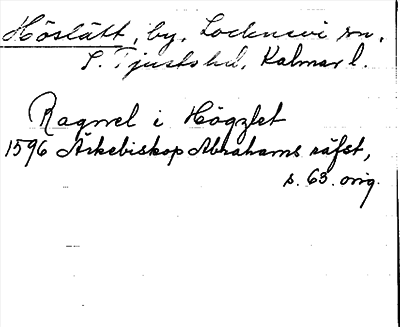 Höslätt, by, Locknevi sn,
S. Tjusts hd, Kalmar l.
Ragvvel i Högzlet
1596 Ärkebiskop Abrahams räfst,
s. 63. orig.